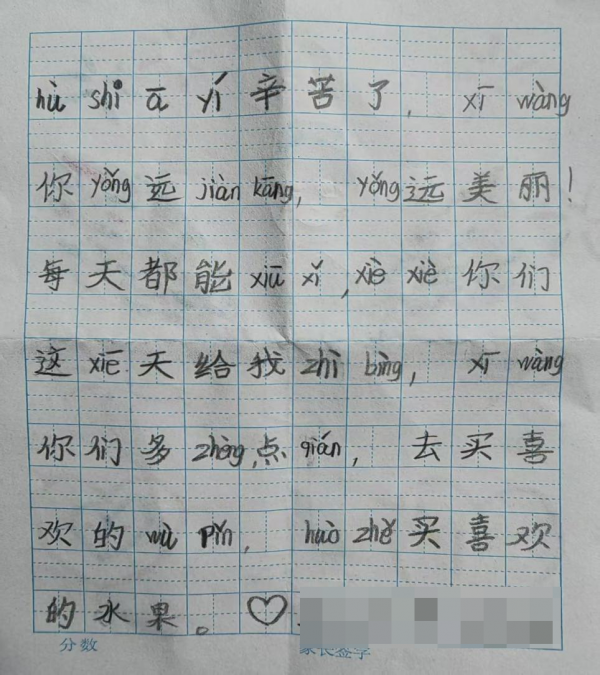 hù shi ā yí 辛苦了，xī wàng
你 yǒng 远 jiàn kāng，yǒng 远美丽！
每天都能 xiū xi，xiè xiè 你们
这 xiē 天给我 zhì bìng，xī wàng
你们多 zhèng 点 qián，去买喜
欢的 wù pǐn，huò zhě 买喜欢
的水果。♡
分数